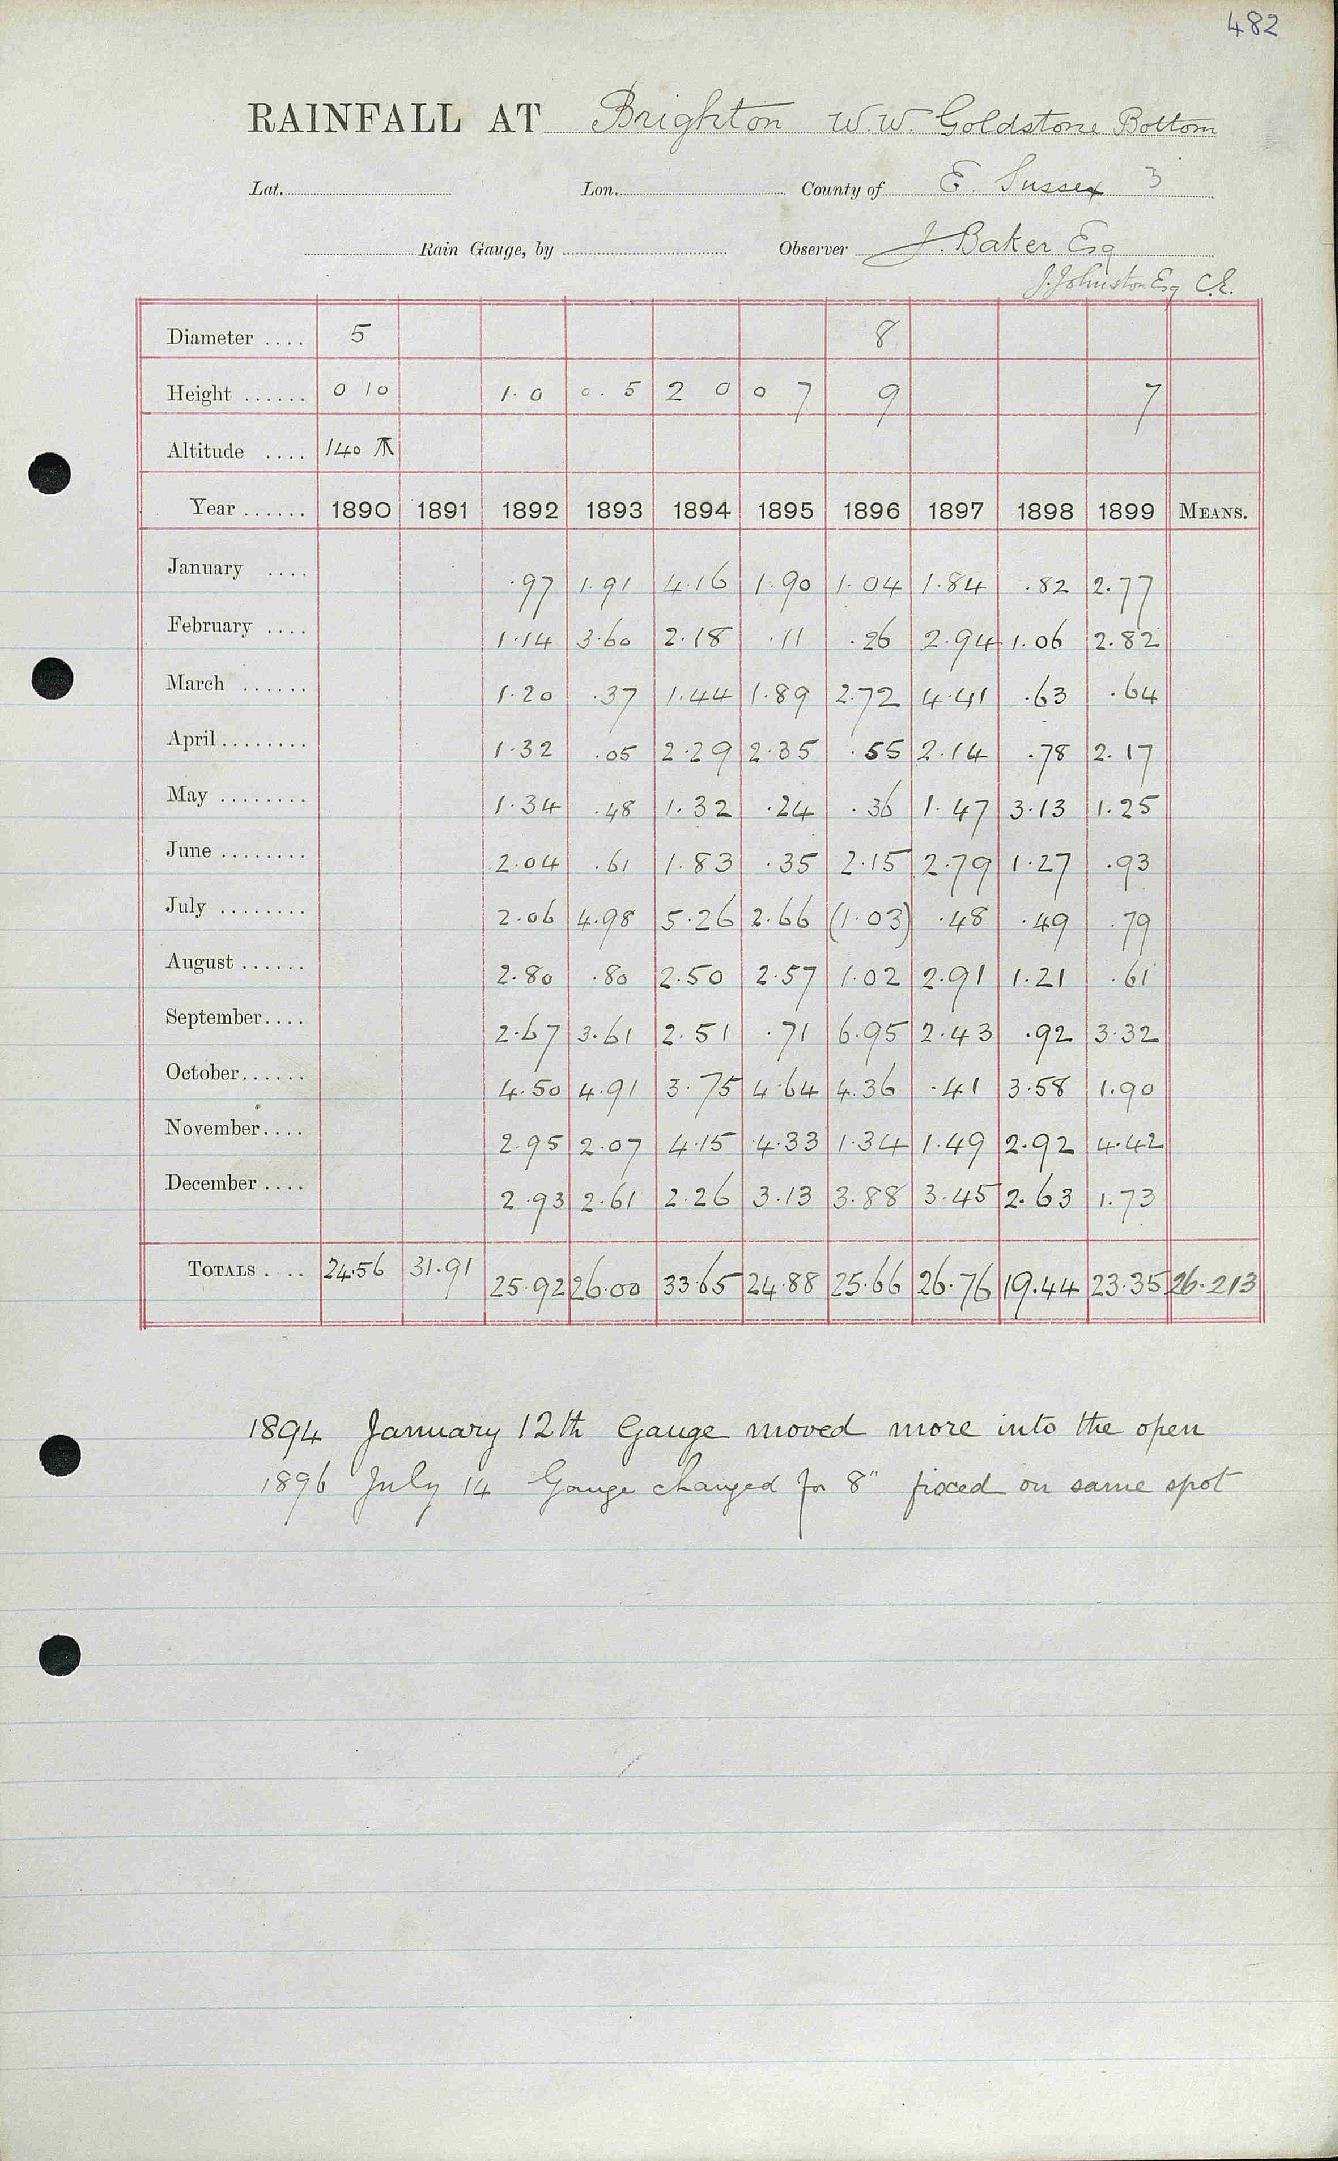 482
RAINFALL AT Brighton W.W. Goldstone Bottom
Lat. Lon. County of E. Sussex 3
Rain Gauge, by Observer J. Baker Esq
J. Johnston Esq C.E.
Diameter .... 5 8
Height ...... 0 10 1.0 0.5 2 0 0 7 9 7
Altitude .... 140
Year ...... 1890 1891 1892 1893 1894 1895 1896 1897 1898 1899 MEANS.
January .... .97 1.91 4.16 1.90 1.04 1.84 .82 2.77
February .... 1.14 3.60 2.18 .11 .26 2.94 1.06 2.82
March ...... 1.20 .37 1.44 1.89 2.72 4.41 .63 .64
April ........ 1.32 .05 2.29 2.35 .55 2.14 .78 2.17
May ........ 1.34 .48 1.32 .24 .36 1.47 3.13 1.25
June ........ 2.04 .61 1.83 .35 2.15 2.79 1.27 .93
July ........ 2.06 4.98 5.26 2.66 (1.03) .48 .49 .79
August ...... 2.80 .80 2.50 2.57 1.02 2.91 1.21 .61
September.... 2.67 3.61 2.51 .71 6.95 2.43 .92 3.32
October...... 4.50 4.91 3.75 4.64 4.36 .41 3.58 1.90
November.... 2.95 2.07 4.15 4.33 1.34 1.49 2.92 4.42
December .... 2.93 2.61 2.26 3.13 3.88 3.45 2.63 1.73
TOTALS .... 24.56 31.91 25.92 26.00 33.65 24.88 25.66 26.76 19.44 23.35 26.213
1894 January 12th Gauge moved more into the open
1896 July 14 Gauge changed for 8" fixed on same spot